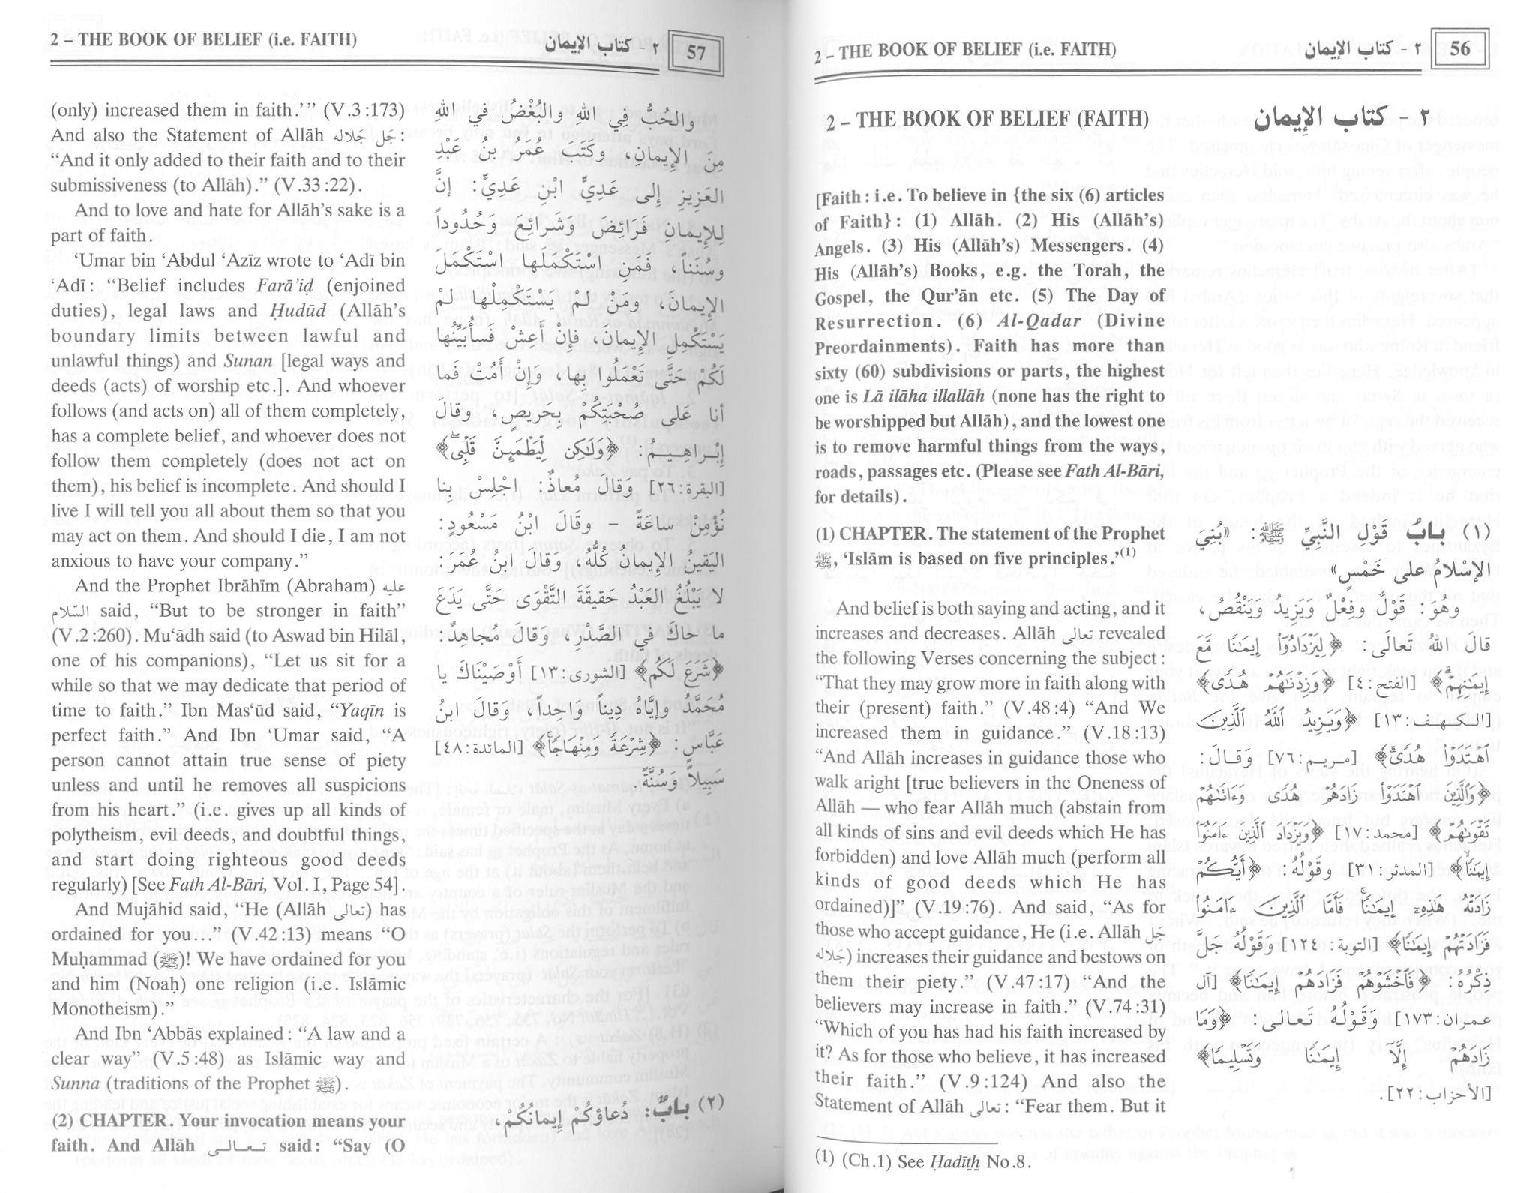 2 – THE BOOK OF BELIEF (i.e. FAITH)
٢ - كتاب الإيمان
56
2 – THE BOOK OF BELIEF (FAITH)
٢ - كتاب الإيمان
[Faith : i.e. To believe in {the six (6) articles
of Faith} : (1) Allāh. (2) His (Allāh's)
Angels. (3) His (Allāh's) Messengers. (4)
His (Allāh's) Books, e.g. the Torah, the
Gospel, the Qur'ān etc. (5) The Day of
Resurrection. (6) Al-Qadar (Divine
Preordainments). Faith has more than
sixty (60) subdivisions or parts, the highest
one is Lā ilāha illallāh (none has the right to
be worshipped but Allāh), and the lowest one
is to remove harmful things from the ways,
roads, passages etc. (Please see Fath Al-Bāri,
for details).
(1) CHAPTER. The statement of the Prophet
ﷺ, 'Islām is based on five principles.'(1)
And belief is both saying and acting, and it
increases and decreases. Allāh تعالى revealed
the following Verses concerning the subject :
"That they may grow more in faith along with
their (present) faith." (V.48 :4) "And We
increased them in guidance." (V.18 :13)
"And Allāh increases in guidance those who
walk aright [true believers in the Oneness of
Allāh — who fear Allāh much (abstain from
all kinds of sins and evil deeds which He has
forbidden) and love Allāh much (perform all
kinds of good deeds which He has
ordained)]" (V.19 :76). And said, "As for
those who accept guidance, He (i.e. Allāh جل
جلاله) increases their guidance and bestows on
them their piety." (V.47 :17) "And the
believers may increase in faith." (V.74 :31)
"Which of you has had his faith increased by
it? As for those who believe, it has increased
their faith." (V.9 :124) And also the
Statement of Allāh تعالى : "Fear them. But it
(١) بابُ قَوْلِ النَّبِيِّ ﷺ: «بُنِيَ
الإِسْلامُ على خَمْسٍ»
وهُوَ: قَوْلٌ وفِعْلٌ وَيَزِيدُ وَيَنْقُصُ،
قالَ اللهُ تَعالى: ﴿لِيَزْدَادُوٓا۟ إِيمَـٰنًا مَّعَ
إِيمَـٰنِهِمْ﴾ [الفتح:٤] ﴿وَزِدْنَـٰهُمْ هُدًى﴾
[الكهف:١٣] ﴿وَيَزِيدُ ٱللَّهُ ٱلَّذِينَ
ٱهْتَدَوْا۟ هُدًى﴾ [مريم:٧٦] وَقالَ:
﴿وَٱلَّذِينَ ٱهْتَدَوْا۟ زَادَهُمْ هُدًى وَءَاتَـٰهُمْ
تَقْوَىٰهُمْ﴾ [محمد:١٧] ﴿وَيَزْدَادَ ٱلَّذِينَ ءَامَنُوٓا۟
إِيمَـٰنًا﴾ [المدثر:٣١] وقَوْلُهُ: ﴿أَيُّكُمْ
زَادَتْهُ هَـٰذِهِۦٓ إِيمَـٰنًا فَأَمَّا ٱلَّذِينَ ءَامَنُوا۟
فَزَادَتْهُمْ إِيمَـٰنًا﴾ [التوبة:١٢٤] وَقَوْلُهُ جَلَّ
ذِكْرُهُ: ﴿فَٱخْشَوْهُمْ فَزَادَهُمْ إِيمَـٰنًا﴾ [آل
عمران:١٧٣] وَقَوْلُهُ تَعالى: ﴿وَمَا
زَادَهُمْ إِلَّآ إِيمَـٰنًا وَتَسْلِيمًا﴾
[الأحزاب:٢٢].
(1) (Ch.1) See Ḥadīth No.8.
2 – THE BOOK OF BELIEF (i.e. FAITH)
٢ - كتاب الإيمان
57
(only) increased them in faith.'" (V.3 :173)
And also the Statement of Allāh جل جلاله :
"And it only added to their faith and to their
submissiveness (to Allāh)." (V.33 :22).
And to love and hate for Allāh's sake is a
part of faith.
'Umar bin 'Abdul 'Azīz wrote to 'Adī bin
'Adī : "Belief includes Farā'iḍ (enjoined
duties), legal laws and Ḥudūd (Allāh's
boundary limits between lawful and
unlawful things) and Sunan [legal ways and
deeds (acts) of worship etc.]. And whoever
follows (and acts on) all of them completely,
has a complete belief, and whoever does not
follow them completely (does not act on
them), his belief is incomplete. And should I
live I will tell you all about them so that you
may act on them. And should I die, I am not
anxious to have your company."
And the Prophet Ibrāhīm (Abraham) عليه
السلام said, "But to be stronger in faith"
(V.2 :260). Mu'ādh said (to Aswad bin Hilāl,
one of his companions), "Let us sit for a
while so that we may dedicate that period of
time to faith." Ibn Mas'ūd said, "Yaqīn is
perfect faith." And Ibn 'Umar said, "A
person cannot attain true sense of piety
unless and until he removes all suspicions
from his heart." (i.e. gives up all kinds of
polytheism, evil deeds, and doubtful things,
and start doing righteous good deeds
regularly) [See Fath Al-Bāri, Vol. I, Page 54].
And Mujāhid said, "He (Allāh تعالى) has
ordained for you..." (V.42 :13) means "O
Muḥammad (ﷺ)! We have ordained for you
and him (Noaḥ) one religion (i.e. Islāmic
Monotheism)."
And Ibn 'Abbās explained : "A law and a
clear way" (V.5 :48) as Islāmic way and
Sunna (traditions of the Prophet ﷺ).
(2) CHAPTER. Your invocation means your
faith. And Allāh تعالى said : "Say (O
والحُبُّ فِي اللهِ والبُغْضُ في اللهِ
مِنَ الإِيمانِ، وكَتَبَ عُمَرُ بنُ عَبْدِ
العَزِيزِ إلى عَدِيِّ ابْنِ عَدِيٍّ: إنَّ
لِلإِيمَانِ فَرَائِضَ وَشَرائعَ وَحُدُوداً
وسُنَناً، فَمَنِ اسْتَكْمَلها اسْتَكْمَلَ
الإيمانَ، ومَنْ لَمْ يَسْتَكْمِلْها لَمْ
يَسْتَكْمِلِ الإيمانَ، فإنْ أَعِشْ فَسأُبَيِّنُها
لَكُمْ حَتَّى تَعْمَلُوا بِها، وَإِنْ أَمُتْ فَما
أنا عَلى صُحْبَتِكُمْ بِحَرِيصٍ، وقالَ
إبْراهِيمُ: ﴿وَلَـٰكِن لِّيَطْمَئِنَّ قَلْبِى﴾
[البقرة:٢٦] وَقالَ مُعاذٌ: اجْلِسْ بِنا
نُؤْمِنْ ساعَةً – وقالَ ابْنُ مَسْعُودٍ:
اليَقِينُ الإيمانُ كُلُّهُ، وقالَ ابنُ عُمَرَ:
لا يَبْلُغُ العَبْدُ حَقِيقَةَ التَّقْوَى حَتَّى يَدَعَ
ما حاكَ في الصَّدْرِ، وَقالَ مُجاهِدٌ:
﴿شَرَعَ لَكُم﴾ [الشورى:١٣] أَوْصَيْناكَ يا
مُحَمَّدُ وإيَّاهُ دِيناً واحِداً، وَقالَ ابنُ
عَبَّاسٍ: ﴿شِرْعَةً وَمِنْهَاجًا﴾ [المائدة:٤٨]
سَبِيلاً وَسُنَّةً.
(٢) بابٌ: دُعاؤكُمْ إيمانُكُمْ،